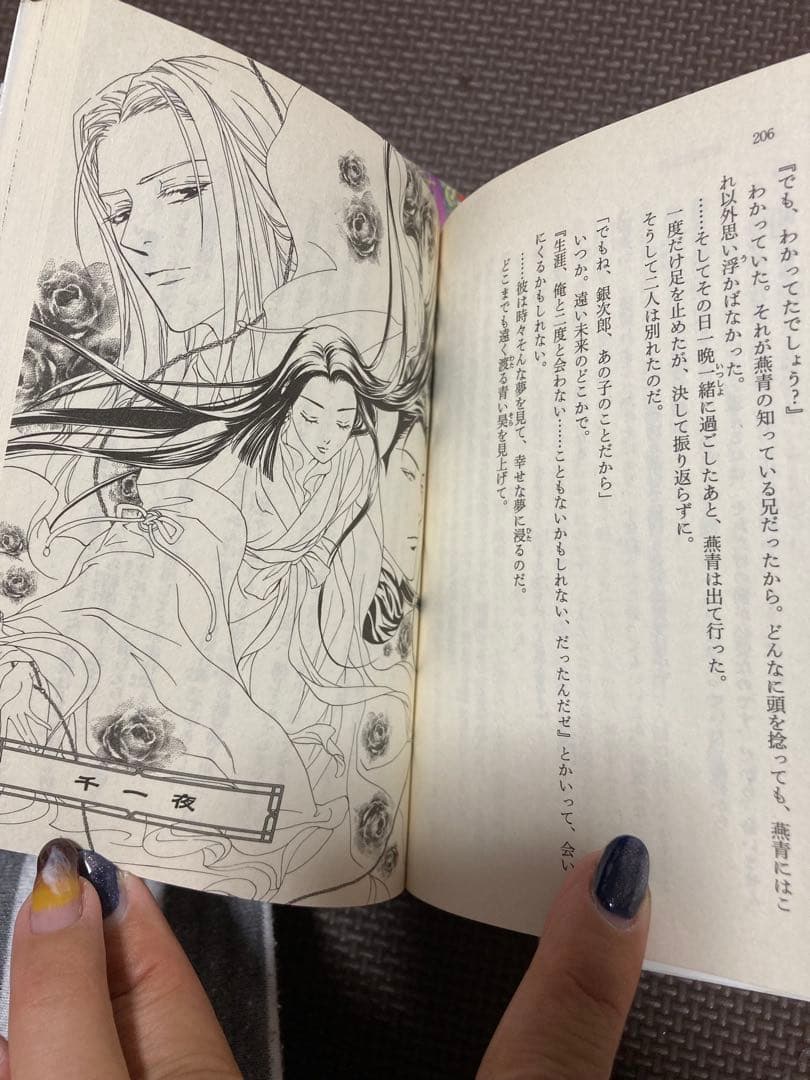 206
『でも、わかってたでしょう?』
わかっていた。それが燕青の知っている兄だったから。どんなに頭を捻っても、燕青にはこ
れ以外思い浮かばなかった。
……そしてその日一晩一緒に過ごしたあと、燕青は出て行った。
一度だけ足を止めたが、決して振り返らずに。
そうして二人は別れたのだ。
「でもね、銀次郎、あの子のことだから」
いつか。遠い未来のどこかで。
『生涯、俺と二度と会わない……こともないかもしれない、だったんだぜ』とかいって、会い
にくるかもしれない。
……彼は時々そんな夢を見て、幸せな夢に浸るのだ。
どこまでも遠く渡る青い昊を見上げて。
千一夜